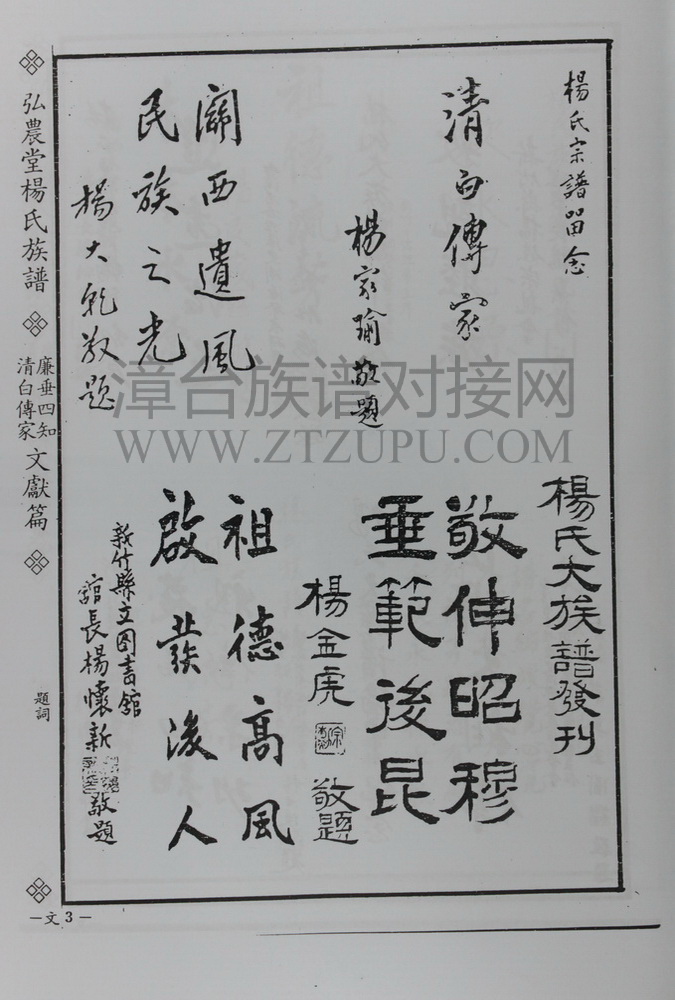 楊氏宗譜留念
清白傳家
楊家瑜敬題
關西遺風
民族之光
楊大乾敬題
楊氏大族譜發刊
敬伸昭穆
垂範後昆
楊金虎 敬題
祖德高風
啟發後人
新竹縣立图書舘
舘長楊懷新 敬題
弘農堂楊氏族譜
廉垂四知
清白傳家
文獻篇
題詞
—文 3 —
漳台族谱对接网
WWW.ZTZUPU.COM